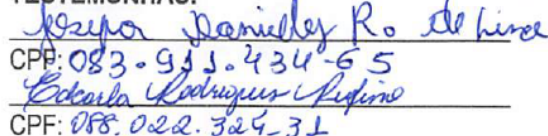 TESTEMUNHAS:
Josefa Danielley R. de Lima
CPF: 083.911.434-65
Edcarla Rodrigues Rufino
CPF: 088.022.324-31